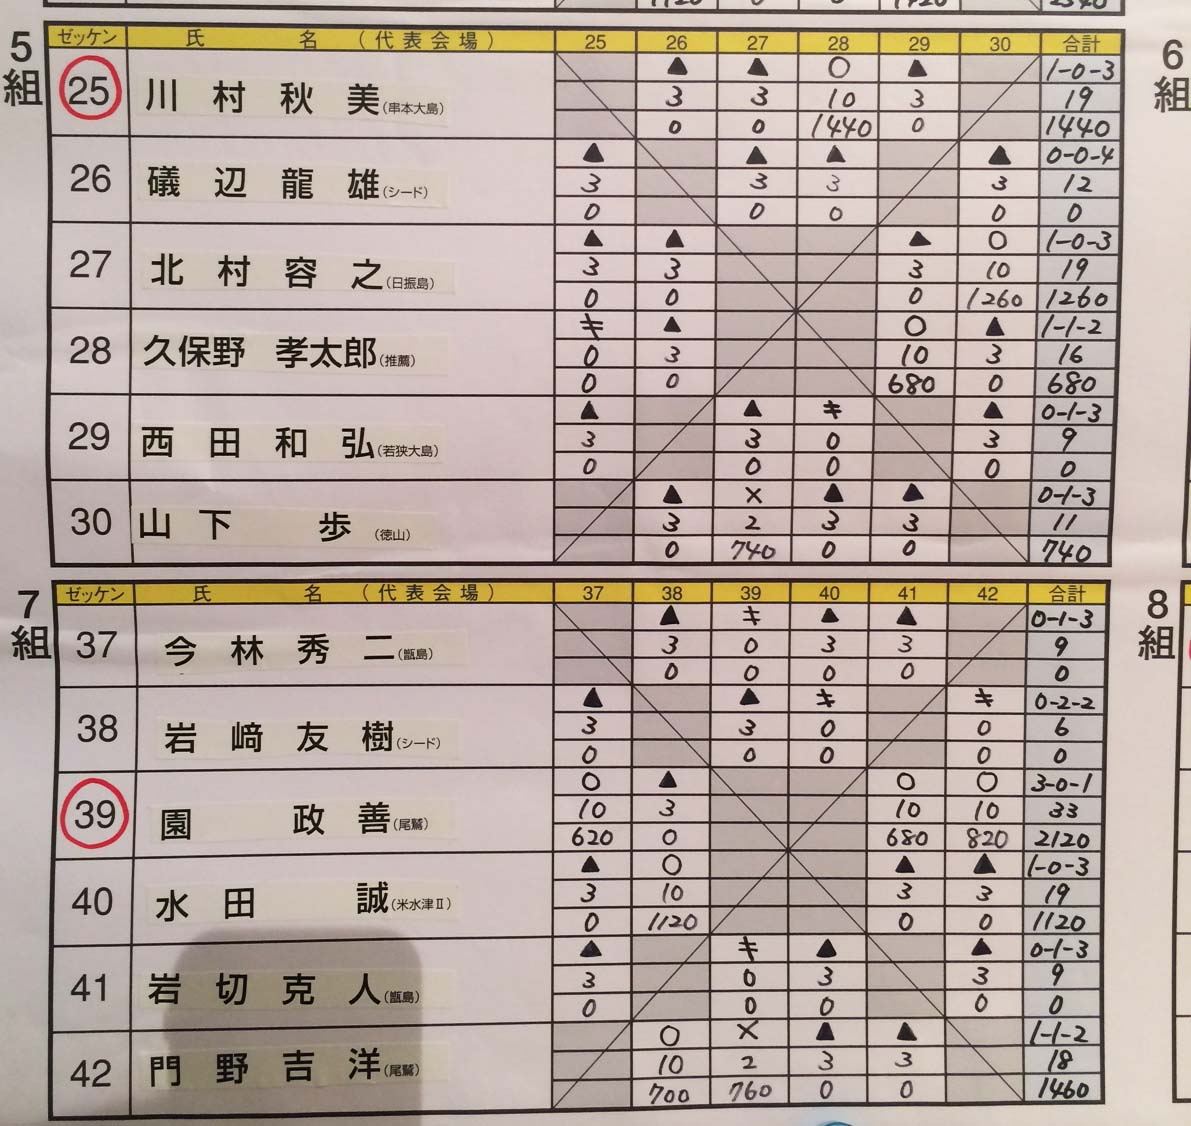 5組
ゼッケン 氏 名 (代表会場) 25 26 27 28 29 30 合計
25 川村秋美(串本大島) ▲ ▲ ○ ▲ 1-0-3
3 3 10 3 19
0 0 1440 0 1440
26 礒辺龍雄(シード) ▲ ▲ ▲ ▲ 0-0-4
3 3 3 3 12
0 0 0 0 0
27 北村容之(日振島) ▲ ▲ ▲ ○ 1-0-3
3 3 3 10 19
0 0 0 1260 1260
28 久保野孝太郎(推薦) キ ▲ ○ ▲ 1-1-2
0 3 10 3 16
0 0 680 0 680
29 西田和弘(若狭大島) ▲ ▲ キ ▲ 0-1-3
3 3 0 3 9
0 0 0 0 0
30 山下歩(徳山) ▲ × ▲ ▲ 0-1-3
3 2 3 3 11
0 740 0 0 740
7組
ゼッケン 氏 名 (代表会場) 37 38 39 40 41 42 合計
37 今林秀二(甑島) ▲ キ ▲ ▲ 0-1-3
3 0 3 3 9
0 0 0 0 0
38 岩﨑友樹(シード) ▲ ▲ キ キ 0-2-2
3 3 0 0 6
0 0 0 0 0
39 園政善(尾鷲) ○ ▲ ○ ○ 3-0-1
10 3 10 10 33
620 0 680 820 2120
40 水田誠(米水津Ⅱ) ▲ ○ ▲ ▲ 1-0-3
3 10 3 3 19
0 1120 0 0 1120
41 岩切克人(甑島) ▲ キ ▲ ▲ 0-1-3
3 0 3 3 9
0 0 0 0 0
42 門野吉洋(尾鷲) ○ × ▲ ▲ 1-1-2
10 2 3 3 18
700 760 0 0 1460
6組
8組